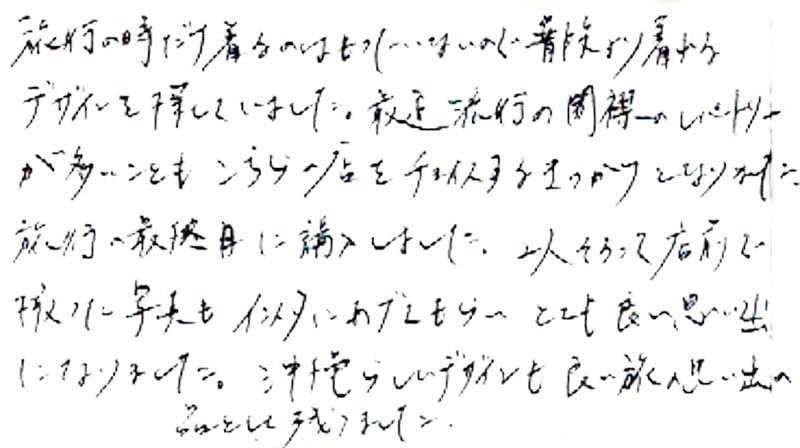 旅行の時だけ着るのはもったいないので普段より着れる
デザインを探していました。最近流行の開襟のレパートリー
が多いことも こちらの店をチョイスするきっかけとなりました。
旅行の最終日に購入しました。二人そろって店前で
撮った写真も インスタにあげてもらい とても良い思い出
になりました。沖縄らしいデザインも良い旅の思い出の
品として残りました。